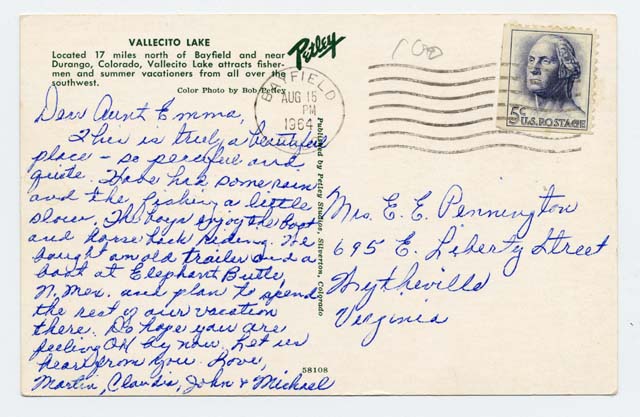 VALLECITO LAKE
Located 17 miles north of Bayfield and near
Durango, Colorado, Vallecito Lake attracts fisher-
men and summer vacationers from all over the
southwest.
Color Photo by Bob Petley
Petley
BAYFIELD
AUG 15
PM
1964
5c U.S. POSTAGE
Dear Aunt Emma,
This is truly a beautiful
place - so peaceful and
quite. Have had some rain
and the fishing a little
slow. The boys enjoy the boat
and horse back riding. We
bought an old trailer and a
boat at Elephant Butte,
N. Mex. and plan to spend
the rest of our vacation
there. Do hope you are
feeling OK by now. Let us
hear from you. Love,
Martin, Claudia, John & Michael
Published by Petley Studios, Silverton, Colorado
58108
Mrs. E. E. Pennington
695 E. Liberty Street
Wytheville
Virginia